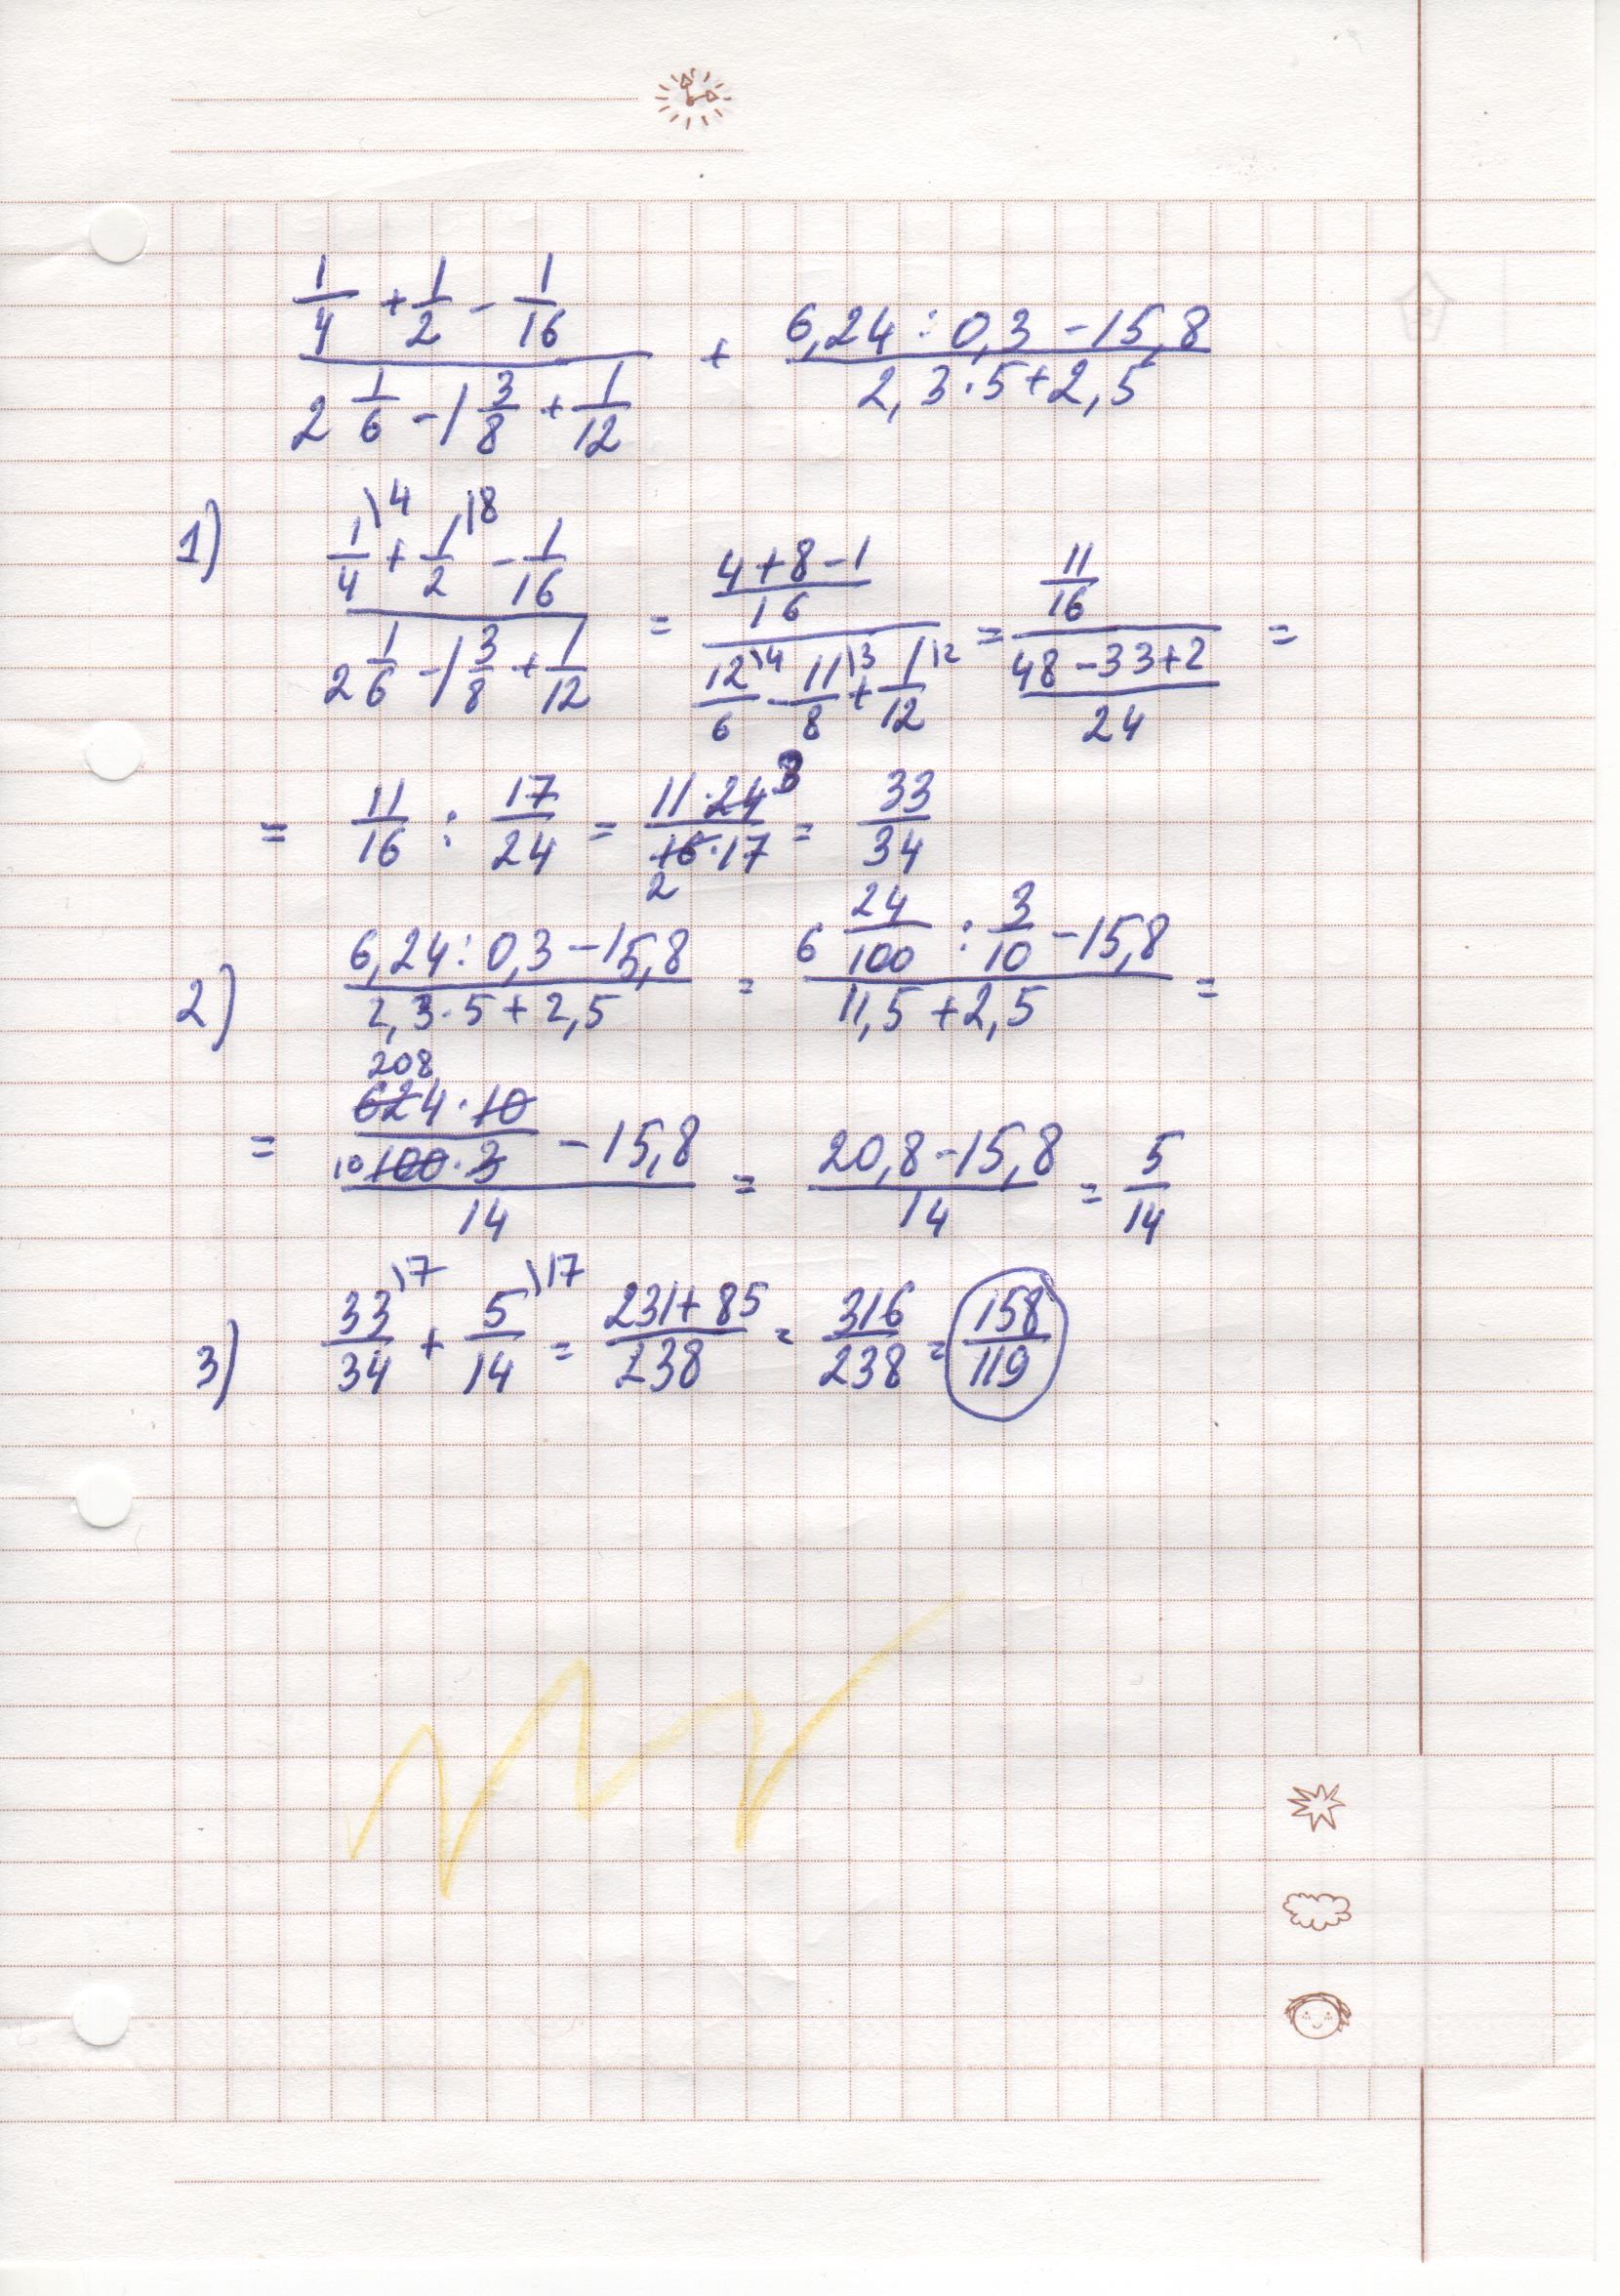 1/4 + 1/2 - 1/16 / 2 1/6 - 1 3/8 + 1/12 + 6,24 : 0,3 - 15,8 / 2,3 · 5 + 2,5
1) 1/4 \4 + 1/2 \8 - 1/16 / 2 1/6 - 1 3/8 + 1/12 = 4+8-1/16 / 12/6 \4 - 11/8 \3 + 1/12 \2 = 11/16 / 48-33+2/24 =
= 11/16 : 17/24 = 11·24 3/16·17 2 = 33/34
2) 6,24 : 0,3 - 15,8 / 2,3 · 5 + 2,5 = 6 24/100 : 3/10 - 15,8 / 11,5 + 2,5 =
= 208 624 · 10 / 10 100 · 3 - 15,8 / 14 = 20,8 - 15,8 / 14 = 5/14
3) 33/34 \7 + 5/14 \17 = 231+85/238 = 316/238 = 158/119